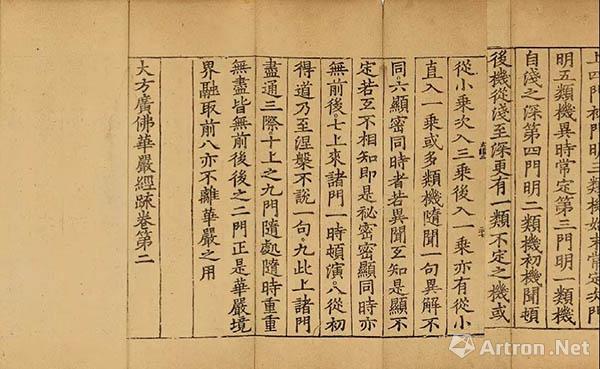 上四門初門明三類機始末常定次門
明五類機異時常定第三門明一類機
自淺之深第四門明二類機初機聞頓
後機從淺至深更有一類不定之機或
從小乘次入三乘後入一乘亦有從小
直入一乘或多類機隨聞一句異解不
同。六顯密同時者若異聞互知是顯不
定若互不相知即是祕密密顯同時亦
無前後。七上來諸門一時頓演。八從初
得道乃至涅槃不說一句。九此上諸門
盡通三際。十上之九門隨處隨時重重
無盡皆無前後後之二門正是華嚴境
界融取前八亦不離華嚴之用
大方廣佛華嚴經䟽卷第二
Artron.Net